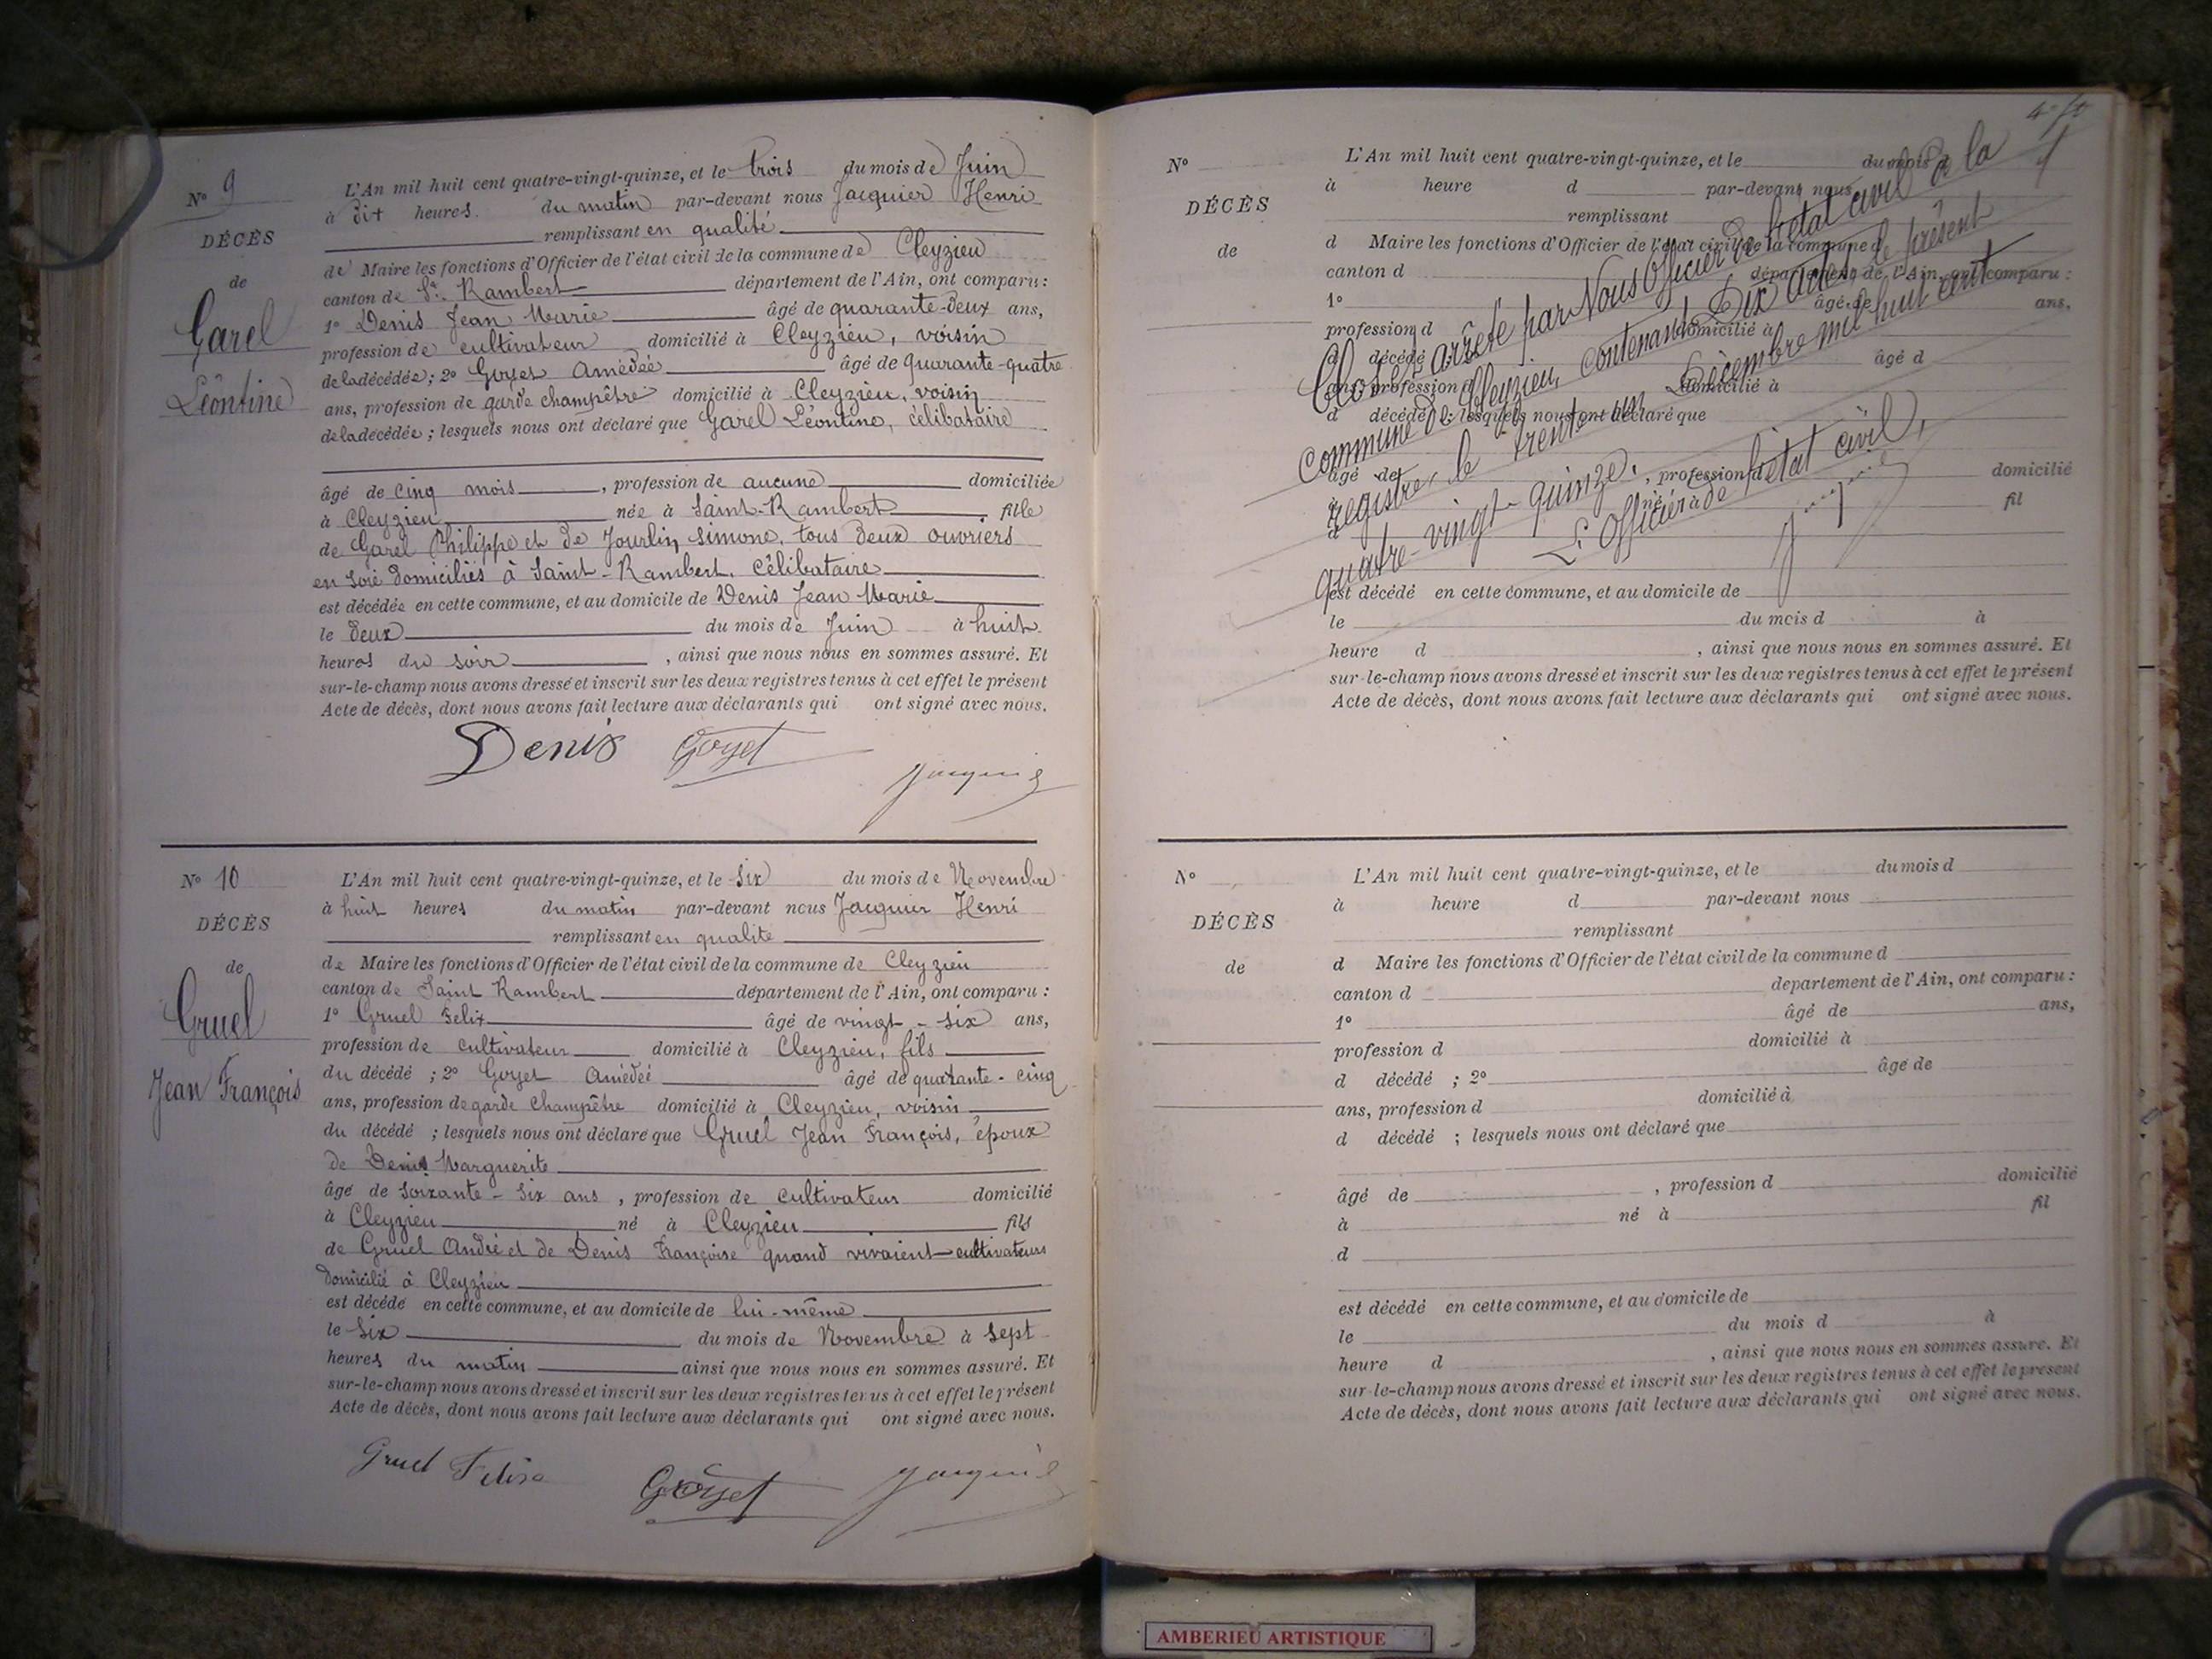 N° 9
DÉCÈS
de
Garel
Léontine
L'An mil huit cent quatre-vingt-quinze, et le trois du mois de Juin
à dix heures du matin par-devant nous Jacquier Henri
remplissant en qualité
de Maire les fonctions d'Officier de l'état civil de la commune de Cleyzieu
canton de St. Rambert département de l'Ain, ont comparu :
1° Denis Jean Marie âgé de quarante-deux ans,
profession de cultivateur domicilié à Cleyzieu, voisin
de la décédée ; 2° Goyet Amédée âgé de quarante-quatre
ans, profession de garde champêtre domicilié à Cleyzieu, voisin
de la décédée ; lesquels nous ont déclaré que Garel Léontine, célibataire
âgé de cinq mois, profession de aucune domiciliée
à Cleyzieu née à Saint-Rambert fille
de Garel Philippe et de Jourlin Simone, tous deux ouvriers
en soie domiciliés à Saint-Rambert, célibataire
est décédée en cette commune, et au domicile de Denis Jean Marie
le deux du mois de Juin à huit
heures du soir, ainsi que nous nous en sommes assuré. Et
sur-le-champ nous avons dressé et inscrit sur les deux registres tenus à cet effet le présent
Acte de décès, dont nous avons fait lecture aux déclarants qui ont signé avec nous.
Denis Goyet
Jacquier
N° 10
DÉCÈS
de
Gruel
Jean François
L'An mil huit cent quatre-vingt-quinze, et le six du mois de Novembre
à huit heures du matin par-devant nous Jacquier Henri
remplissant en qualité
de Maire les fonctions d'Officier de l'état civil de la commune de Cleyzieu
canton de Saint Rambert département de l'Ain, ont comparu :
1° Gruel Felix âgé de vingt-six ans,
profession de cultivateur domicilié à Cleyzieu, fils
du décédé ; 2° Goyet Amédéé âgé de quarante-cinq
ans, profession de garde champêtre domicilié à Cleyzieu, voisin
du décédé ; lesquels nous ont déclaré que Gruel Jean François, époux
de Denis Marguerite
âgé de soixante-six ans, profession de cultivateur domicilié
à Cleyzieu né à Cleyzieu fils
de Gruel André et de Denis Françoise quand vivaient cultivateurs
domicilié à Cleyzieu
est décédé en cette commune, et au domicile de lui-même
le six du mois de Novembre à sept
heures du matin ainsi que nous nous en sommes assuré. Et
sur-le-champ nous avons dressé et inscrit sur les deux registres tenus à cet effet le présent
Acte de décès, dont nous avons fait lecture aux déclarants qui ont signé avec nous.
Gruel Felix Goyet Jacquier
N°
DÉCÈS
de
L'An mil huit cent quatre-vingt-quinze, et le du mois d
à heure d par-devant nous
remplissant
d Maire les fonctions d'Officier de l'état civil de la commune d
canton d département de l'Ain, ont comparu :
1° âgé de ans,
profession d domicilié à
d décédé âgé d
ans, profession d domicilié à
d décédé ; lesquels nous ont déclaré que
âgé de , profession d domicilié
à né à fil
d
est décédé en cette commune, et au domicile de
le du mois d à
heure d , ainsi que nous nous en sommes assuré. Et
sur-le-champ nous avons dressé et inscrit sur les deux registres tenus à cet effet le présent
Acte de décès, dont nous avons fait lecture aux déclarants qui ont signé avec nous.
Clos et arrêté par Nous Officier de l'état civil de la
commune de Cleyzieu, contenant Dix actes, le présent
registre, le trente un Décembre mil huit cent
quatre-vingt-quinze.
L'Officier de l'état civil,
Jacquier
N°
DÉCÈS
de
L'An mil huit cent quatre-vingt-quinze, et le du mois d
à heure d par-devant nous
remplissant
d Maire les fonctions d'Officier de l'état civil de la commune d
canton d département de l'Ain, ont comparu :
1° âgé de ans,
profession d domicilié à
d décédé ; 2° âgé de
ans, profession d domicilié à
d décédé ; lesquels nous ont déclaré que
âgé de , profession d domicilié
à né à fil
d
est décédé en cette commune, et au domicile de
le du mois d à
heure d , ainsi que nous nous en sommes assuré. Et
sur-le-champ nous avons dressé et inscrit sur les deux registres tenus à cet effet le présent
Acte de décès, dont nous avons fait lecture aux déclarants qui ont signé avec nous.
AMBERIEU ARTISTIQUE